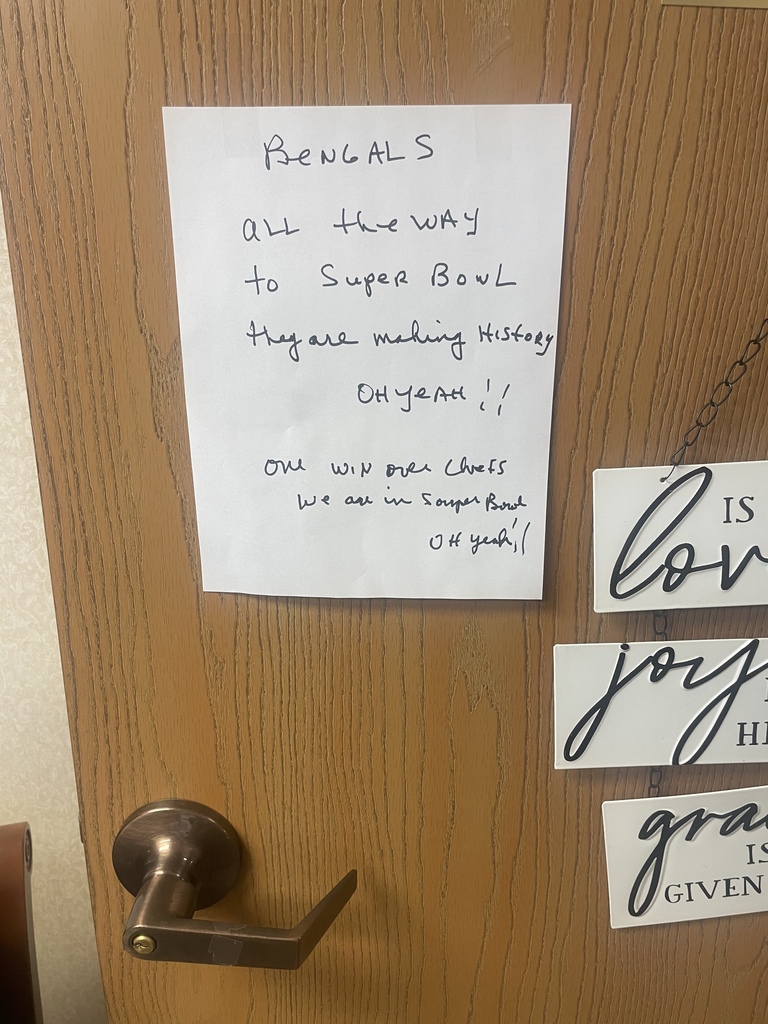 BENGALS
ALL the WAY
to SupeR BOWL
they are making HistoRy
OH yeAH !!
one WIN over Chiefs
We are in Souper Bowl
OH yeah!!
love IS
joy
HE
grace
IS
GIVEN